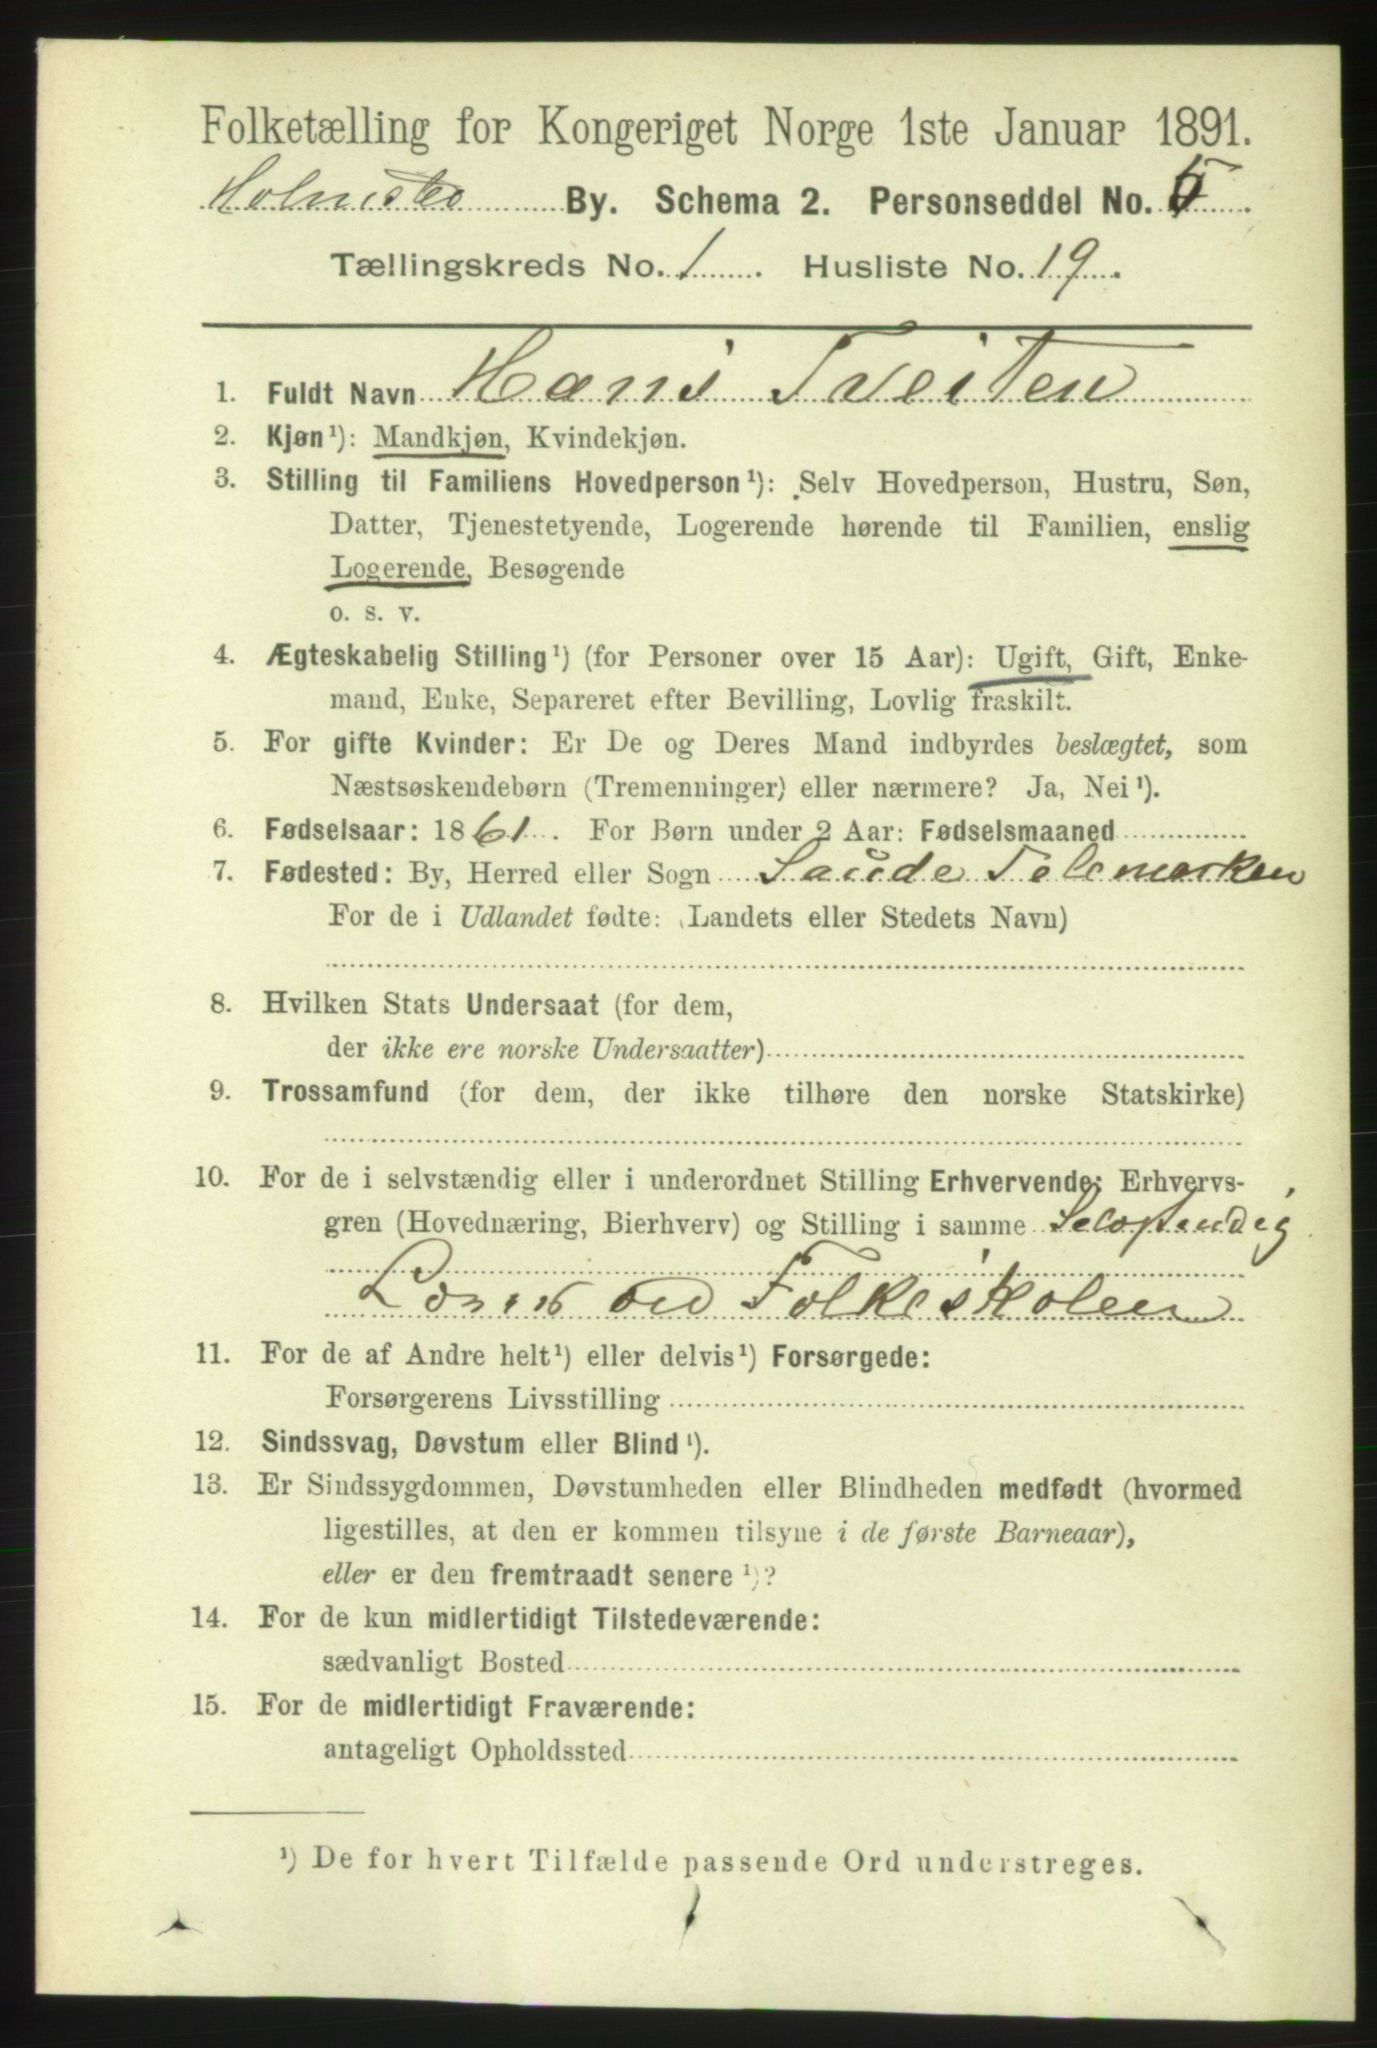 Folketælling for Kongeriget Norge 1ste Januar 1891.
Holmsbo By. Schema 2. Personseddel No. 5.
Tællingskreds No. 1. Husliste No. 19.
1. Fuldt Navn Hans Tveiten
2. Kjøn¹): Mandkjøn, Kvindekjøn.
3. Stilling til Familiens Hovedperson¹): Selv Hovedperson, Hustru, Søn,
Datter, Tjenestetyende, Logerende hørende til Familien, enslig
Logerende, Besøgende
o. s. v.
4. Ægteskabelig Stilling¹) (for Personer over 15 Aar): Ugift, Gift, Enke-
mand, Enke, Separeret efter Bevilling, Lovlig fraskilt.
5. For gifte Kvinder: Er De og Deres Mand indbyrdes beslægtet, som
Næstsøskendebørn (Tremenninger) eller nærmere? Ja, Nei¹).
6. Fødselsaar: 1861. For Børn under 2 Aar: Fødselsmaaned
7. Fødested: By, Herred eller Sogn Saude Telemarken
For de i Udlandet fødte: (Landets eller Stedets Navn)
8. Hvilken Stats Undersaat (for dem,
der ikke ere norske Undersaatter)
9. Trossamfund (for dem, der ikke tilhøre den norske Statskirke)
10. For de i selvstændig eller i underordnet Stilling Erhvervende: Erhvervs-
gren (Hovednæring, Bierhverv) og Stilling i samme Selvstendig
Lærer ved Folkeskolen
11. For de af Andre helt¹) eller delvis¹) Forsørgede:
Forsørgerens Livsstilling
12. Sindssvag, Døvstum eller Blind¹).
13. Er Sindssygdommen, Døvstumheden eller Blindheden medfødt (hvormed
ligestilles, at den er kommen tilsyne i de første Barneaar),
eller er den fremtraadt senere¹)?
14. For de kun midlertidigt Tilstedeværende:
sædvanligt Bosted
15. For de midlertidigt Fraværende:
antageligt Opholdssted
¹) De for hvert Tilfælde passende Ord understreges.